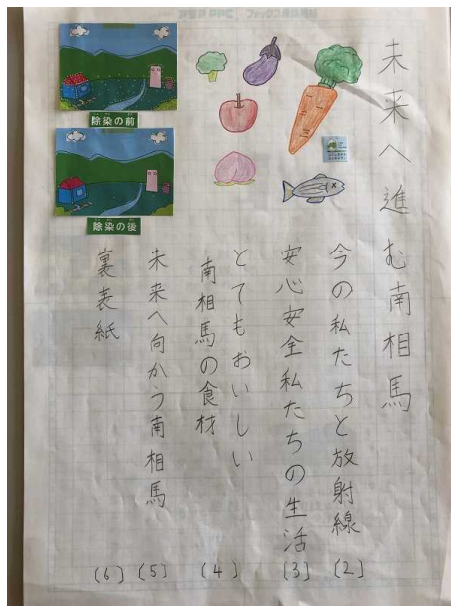 未来へ進む南相馬
今の私たちと放射線 (2)
安心安全私たちの生活 (3)
とてもおいしい
南相馬の食材 (4)
未来へ向かう南相馬 (5)
裏表紙 (6)
除染の前
除染の後